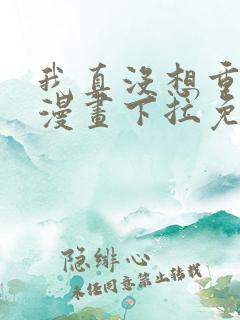 我真没想重
漫畫下拉免
隐绯心
未经同意禁止转载